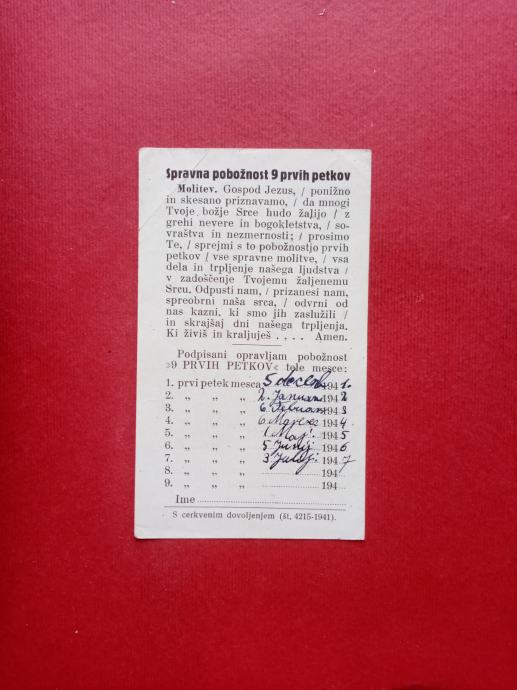 Spravna pobožnost 9 prvih petkov
Molitev. Gospod Jezus, / ponižno
in skesano priznavamo, / da mnogi
Tvoje božje Srce hudo žalijo / z
grehi nevere in bogokletstva, / so-
vraštva in nezmernosti; / prosimo
Te, / sprejmi s to pobožnostjo prvih
petkov / vse spravne molitve, / vsa
dela in trpljenje našega ljudstva /
v zadoščenje Tvojemu žaljenemu
Srcu. Odpusti nam, / prizanesi nam,
spreobrni naša srca, / odvrni od
nas kazni, ki smo jih zaslužili /
in skrajšaj dni našega trpljenja.
Ki živiš in kraljuješ . . . . Amen.
Podpisani opravljam pobožnost
»9 PRVIH PETKOV« tele mesce:
1. prvi petek mesca 5 decemb. 1941.
2. „ „ „ 2. Januar 1942
3. „ „ „ 6. Februar 1943
4. „ „ „ 6 Marec 1944
5. „ „ „ 1. Maj. 1945
6. „ „ „ 5 Junij 1946
7. „ „ „ 3 Julij 1947
8. „ „ „ 194
9. „ „ „ 194
Ime
S cerkvenim dovoljenjem (št. 4215-1941).